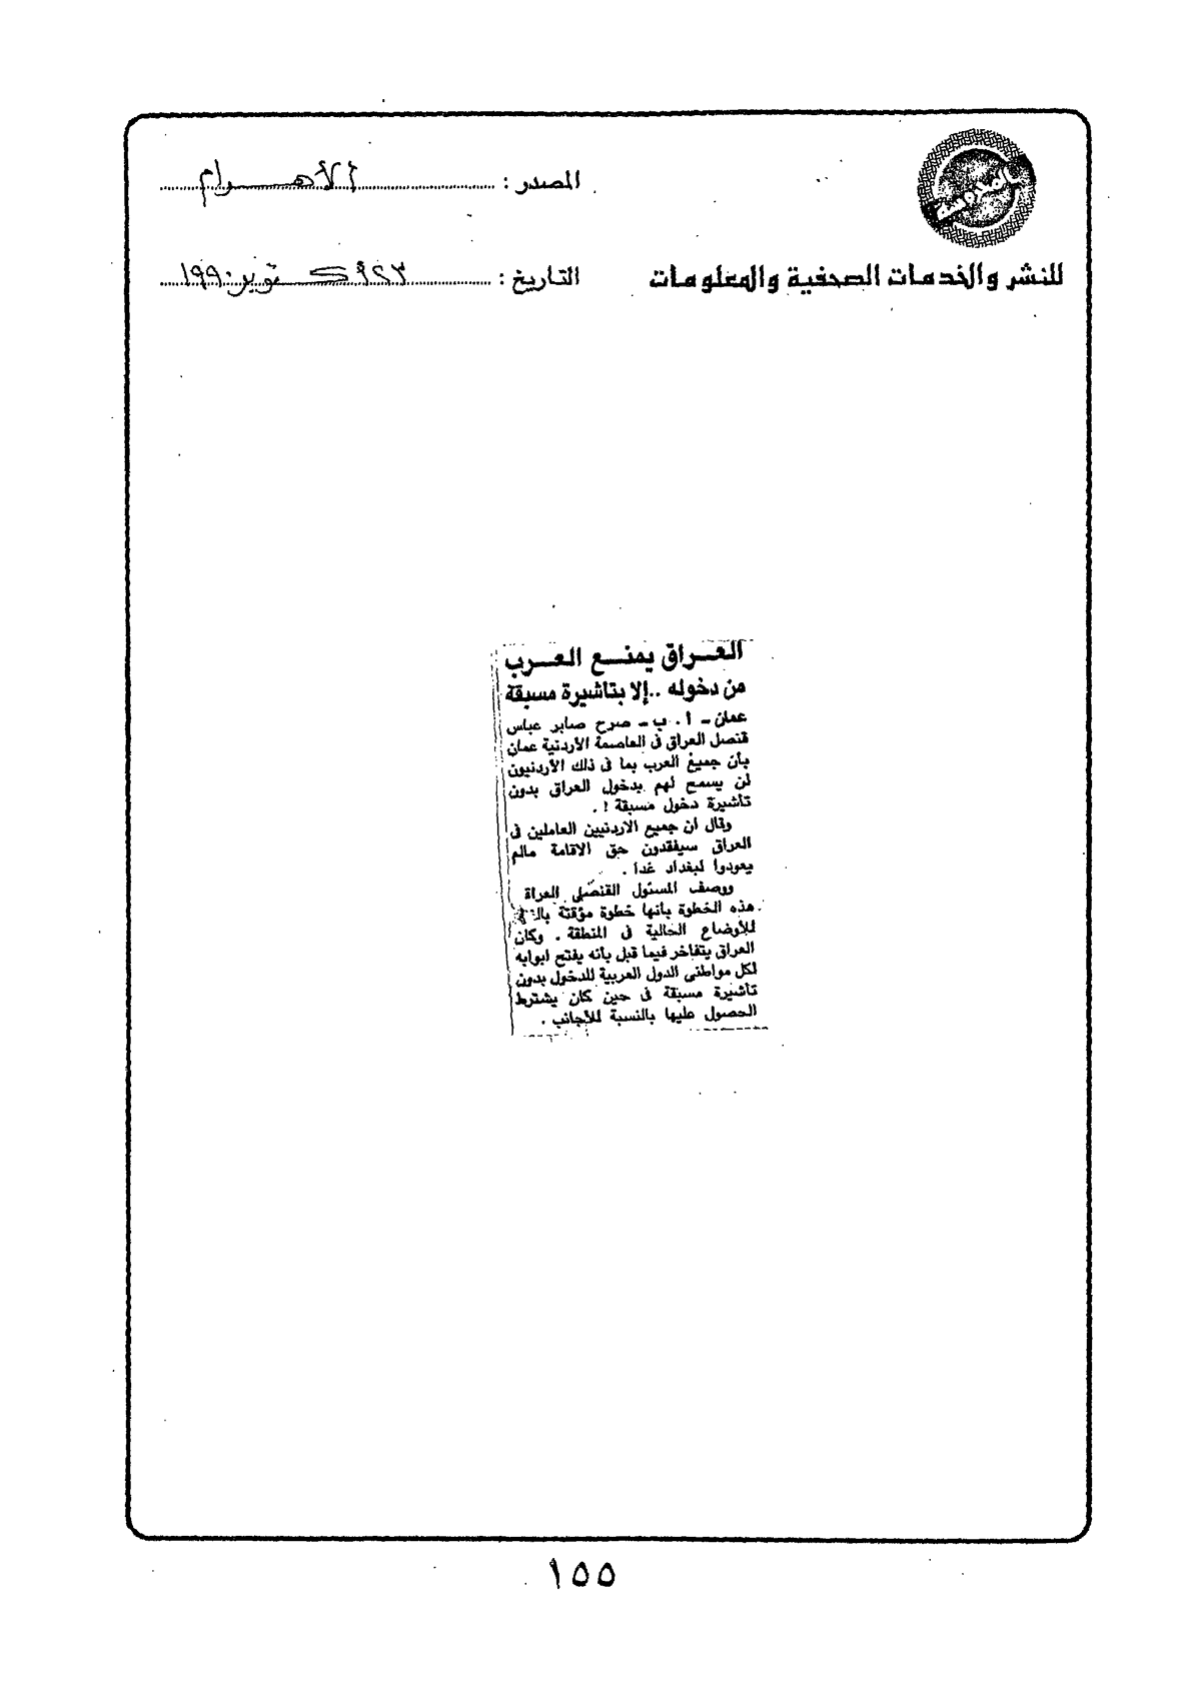 المصدر : الأهرام
للنشر والخدمات الصحفية والمعلومات
التاريخ : ٢٣ أكتوبر ١٩٩٠
العراق يمنع العرب
من دخوله .. إلا بتاشيرة مسبقة
عمان - أ . ب - صرح صابر عباس
قنصل العراق فى العاصمة الأردنية عمان
بأن جميع العرب بما فى ذلك الأردنيون
لن يسمح لهم بدخول العراق بدون
تأشيرة دخول مسبقة ! .
وقال ان جميع الاردنيين العاملين فى
العراق سيفقدون حق الاقامة مالم
يعودوا لبغداد غدا .
ووصف المسئول القنصلى العراق
هذه الخطوة بأنها خطوة مؤقتة
للأوضاع الحالية فى المنطقة . وكان
العراق يتفاخر فيما قبل بأنه يفتح ابوابه
لكل مواطنى الدول العربية للدخول بدون
تأشيرة مسبقة فى حين كان يشترط
الحصول عليها بالنسبة للأجانب .
١٥٥